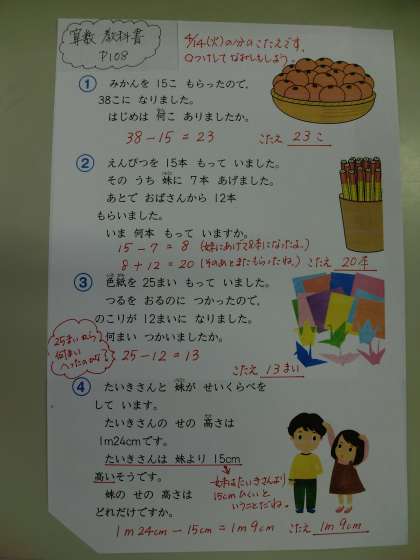 算数 教科書
P108
4/14(火)の分のこたえです。
○つけして なおしもしましょう。
① みかんを 15こ もらったので、
38こに なりました。
はじめは 何こ ありましたか。
38-15=23 こたえ 23こ
② えんぴつを 15本 もって いました。
その うち 妹に 7本 あげました。
あとで おばさんから 12本
もらいました。
いま 何本 もって いますか。
15-7=8 (妹にあげて8本になったよ。)
8+12=20 (そのあとまたもらったね。) こたえ 20本
③ 色紙を 25まい もって いました。
つるを おるのに つかったので、
のこりが 12まいに なりました。
何まい つかいましたか。
25まいから
何まい
へったのかな?
25-12=13
こたえ 13まい
④ たいきさんと 妹が せいくらべを
して います。
たいきさんの せの 高さは
1m24cmです。
たいきさんは 妹より 15cm
高いそうです。
妹の せの 高さは
どれだけですか。
妹はたいきさんより
15cmひくいと
いうことだね。
1m24cm-15cm=1m9cm こたえ 1m9cm